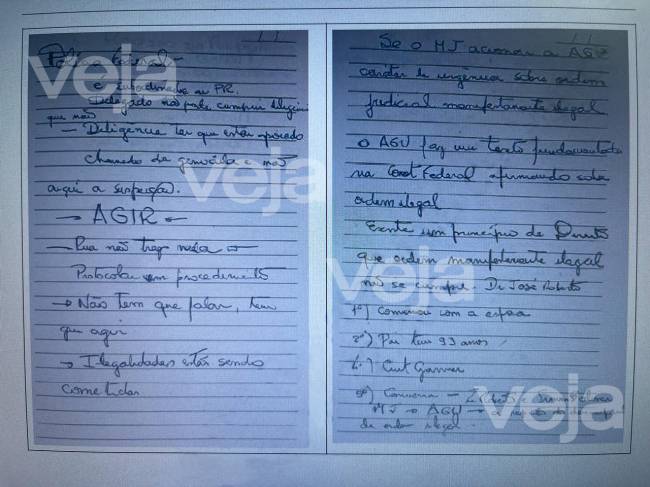 Polícia Federal
é subordinada ao PR.
Delegado não pode cumprir
que não
— Diligência tem que estar apoiado
chamado de genocida e não
aqui a suspeição.
→ AGIR ←
— Rua não traz nada
Protocolar um procedimento
→ Não tem que falar, tem
que agir
→ Ilegalidades estão sendo
cometidas
Se o MJ acionou a AGU
caráter de urgência sobre ordem
judicial manifestante ilegal
o AGU faz um texto fundamentado
na Const Federal afirmando sobre
ordem ilegal
Existe um princípio de Direito
que ordem manifestante ilegal
não se cumpre. Dr José Roberto
1º) Conversou com a esposa
2º) Pai tem 93 anos
4º) Curt Garner
5º) Conversa —
MJ → AGU →
de ordem ilegal.
veja
veja
veja
veja